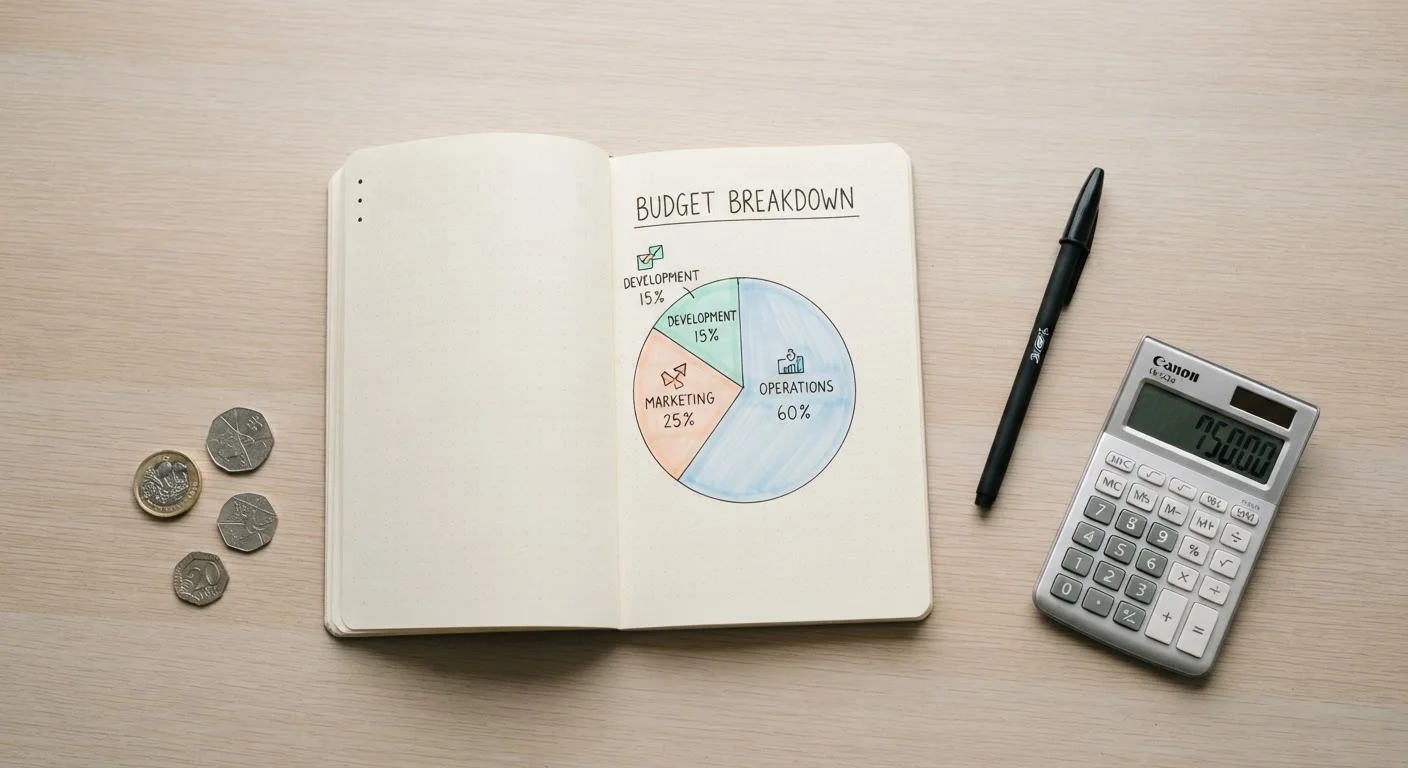 BUDGET BREAKDOWN
DEVELOPMENT
15%
DEVELOPMENT
15%
MARKETING
25%
OPERATIONS
60%
Canon
75000
MC
√
√
MC
MS
M-
M+
÷
7
8
9
%
√
4
5
6
×
÷
1
2
3
+
=
0
.
%
20